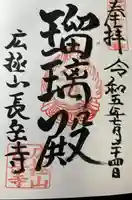 奉拝
令和五年月二十四日
瑠璃殿
広極山長岳寺